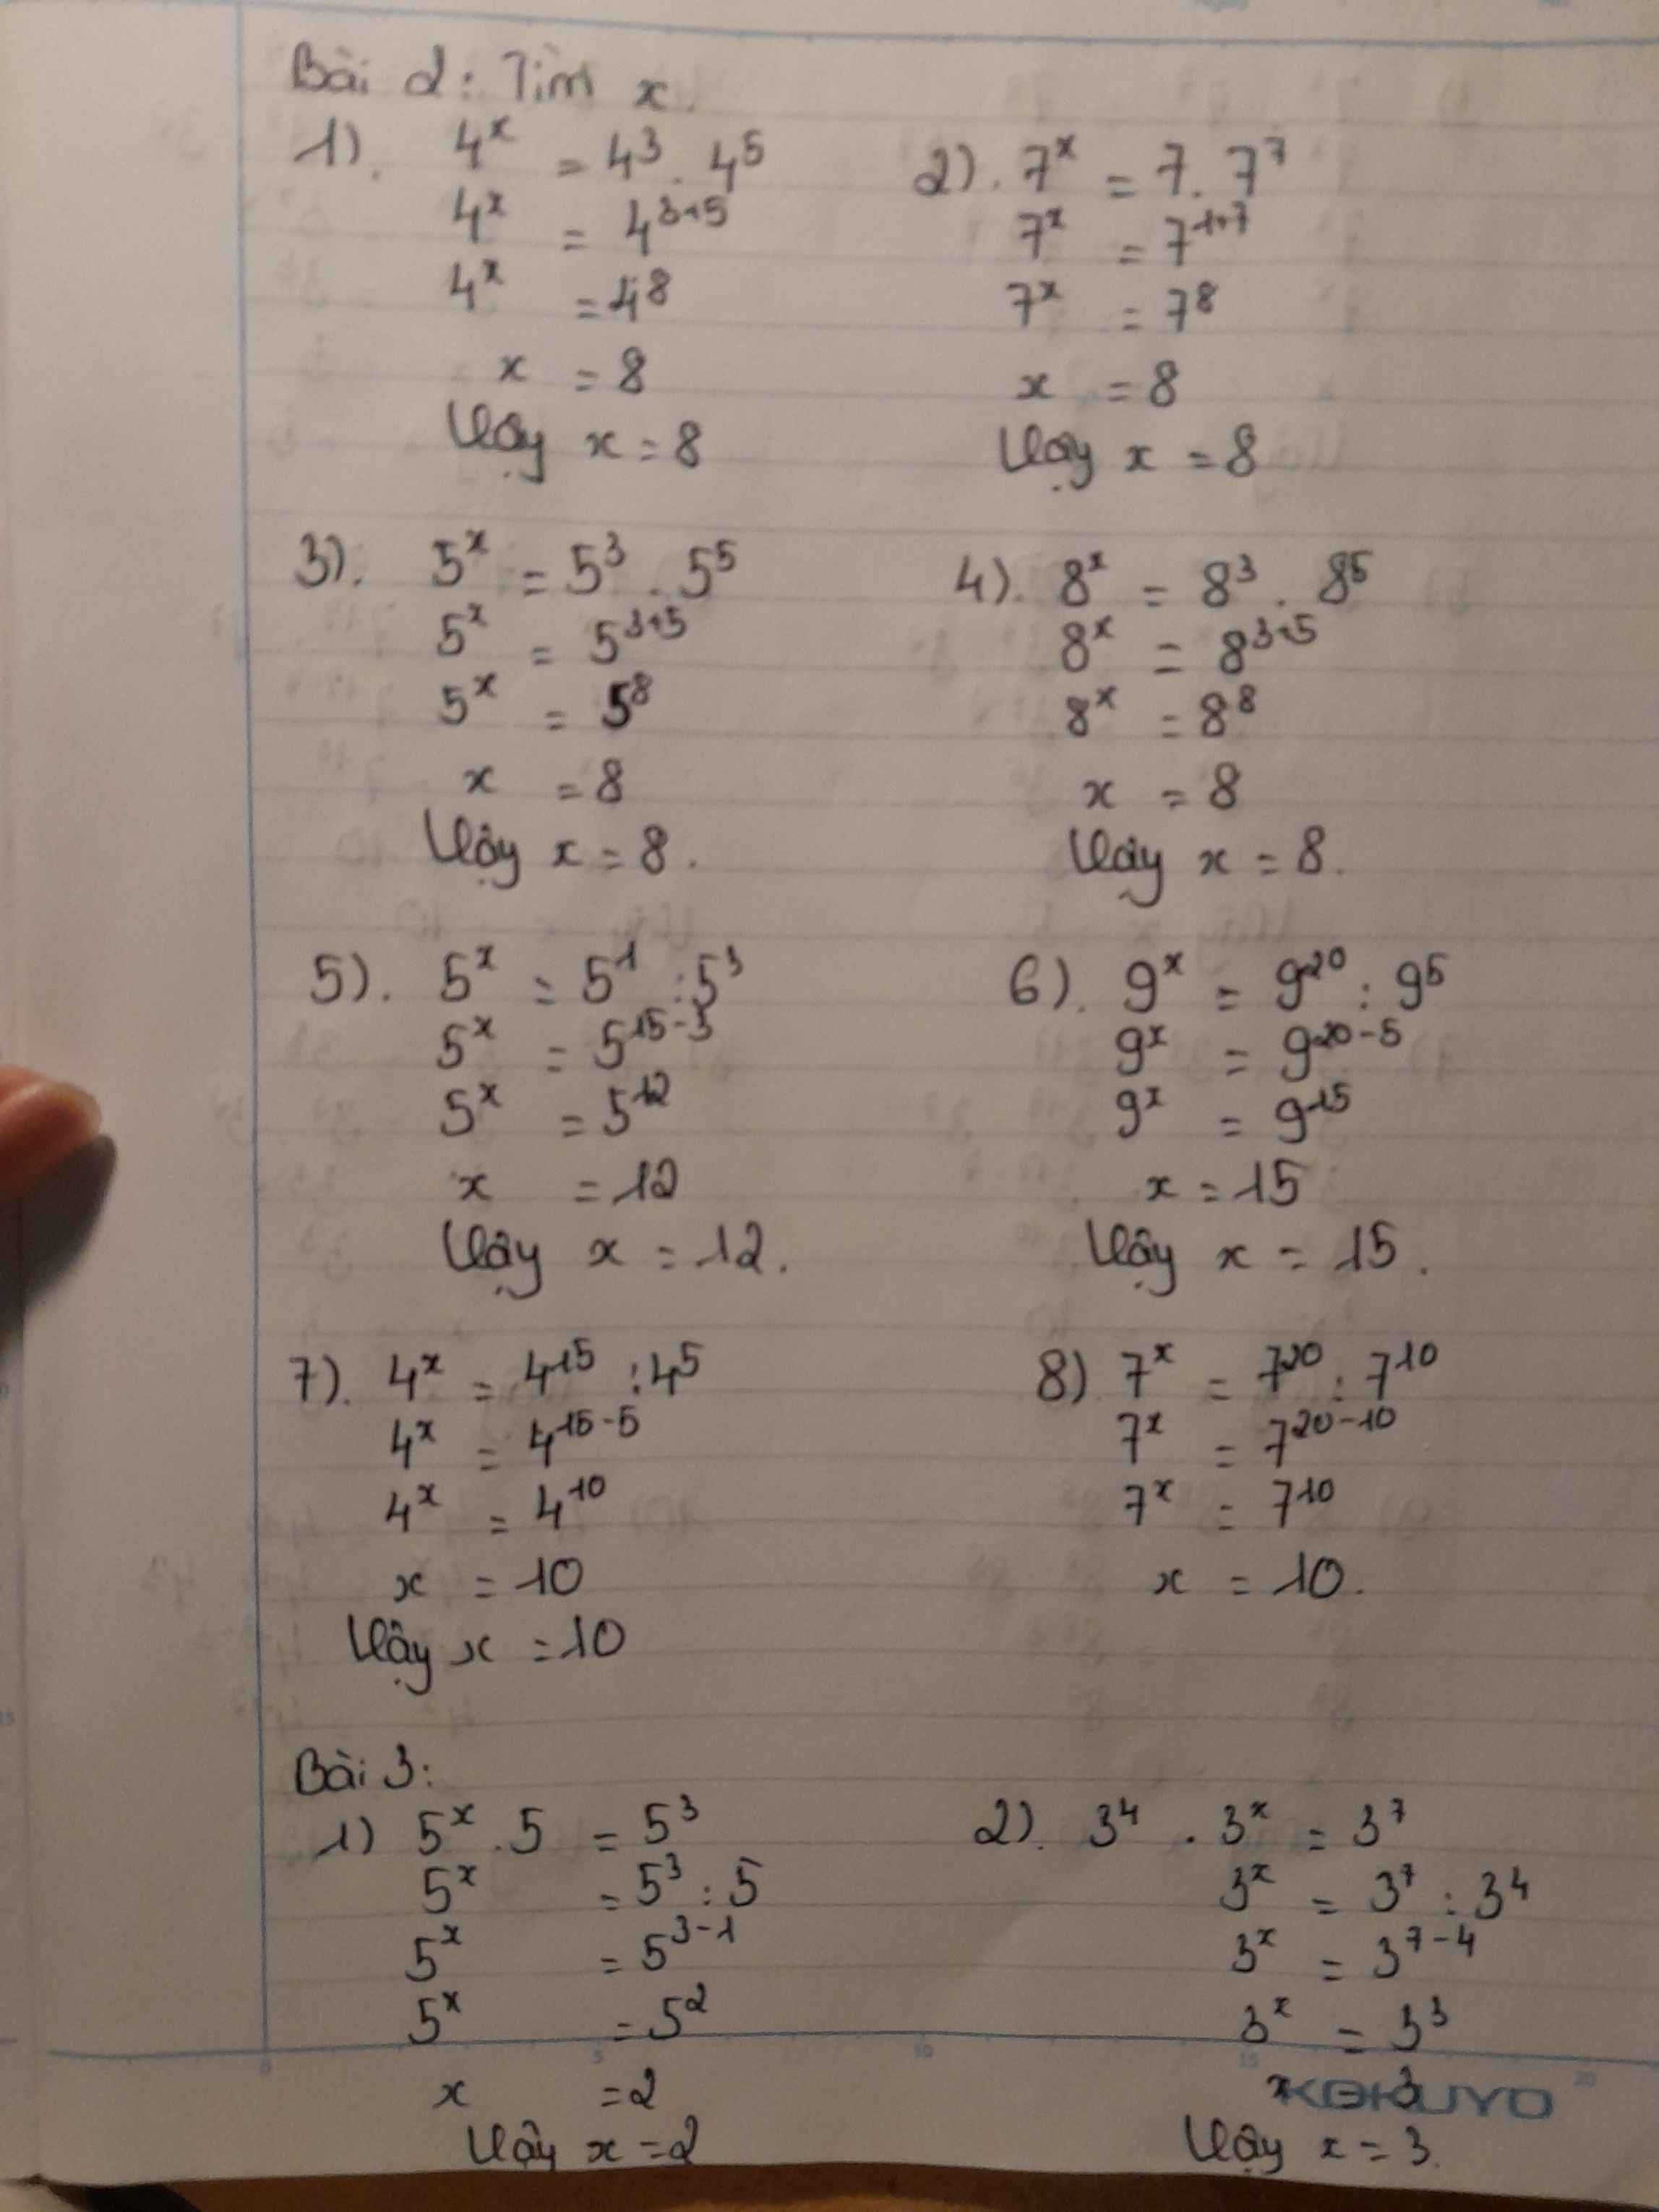 Bài 2: Tìm x.
1). 4^x = 4^3 . 4^5
4^x = 4^{3+5}
4^x = 4^8
x = 8
Vậy x = 8
2). 7^x = 7 . 7^7
7^x = 7^{1+7}
7^x = 7^8
x = 8
Vậy x = 8
3). 5^x = 5^3 . 5^5
5^x = 5^{3+5}
5^x = 5^8
x = 8
Vậy x = 8.
4). 8^x = 8^3 . 8^5
8^x = 8^{3+5}
8^x = 8^8
x = 8
Vậy x = 8.
5). 5^x = 5^1 : 5^3
5^x = 5^{15-3}
5^x = 5^{12}
x = 12
Vậy x = 12.
6). 9^x = 9^{20} : 9^5
9^x = 9^{20-5}
9^x = 9^{15}
x = 15
Vậy x = 15.
7). 4^x = 4^{15} : 4^5
4^x = 4^{15-5}
4^x = 4^{10}
x = 10
Vậy x = 10
8) 7^x = 7^{20} : 7^{10}
7^x = 7^{20-10}
7^x = 7^{10}
x = 10.
Bài 3:
1) 5^x . 5 = 5^3
5^x = 5^3 : 5
5^x = 5^{3-1}
5^x = 5^2
x = 2
Vậy x = 2
2). 3^4 . 3^x = 3^7
3^x = 3^7 : 3^4
3^x = 3^{7-4}
3^x = 3^3
x = 3
Vậy x = 3.
0 5 10 15 20
KOKUYO